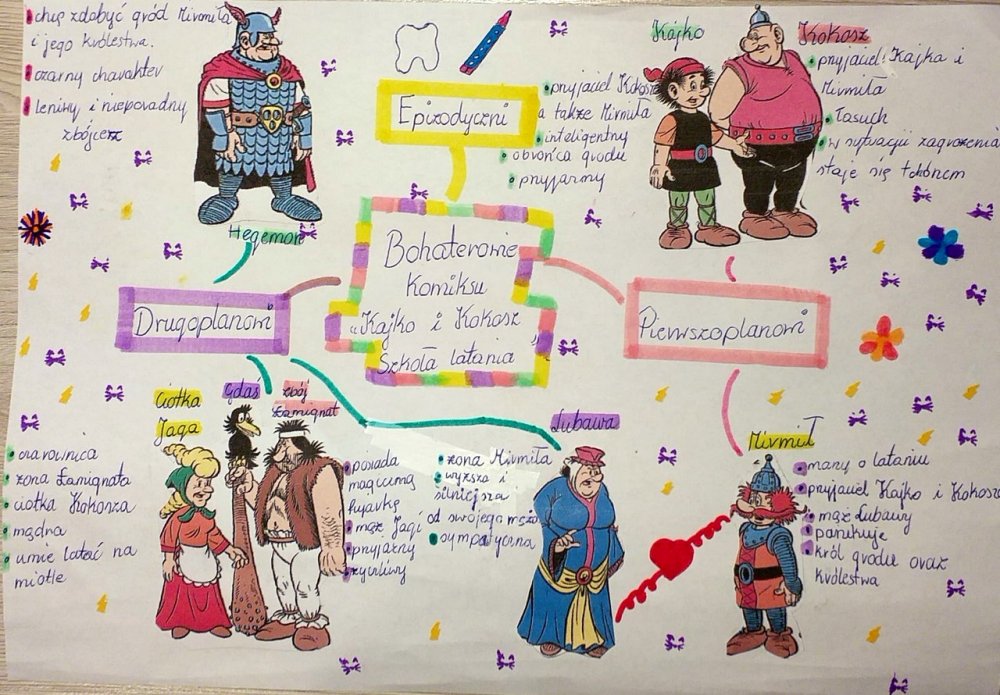 chcę zdobyć gród Mirmiła
i jego królestwa.
czarny charakter
leniwy i nieporadny
zbójcerz
Hegemon
Epizodyczni
Kajko
przyjaciel Kokosza
a także Mirmiła
inteligentny
obrońca grodu
przyjazny
Kokosz
przyjaciel Kajka i
Mirmiła
łasuch
w sytuacji zagrożenia
staje się tchórzem
Bohaterowie
Komiksu
"Kajko i Kokosz
Szkoła latania"
Drugoplanowi
Pierwszoplanowi
Ciotka
Jaga
czarownica
żona Łamignata
ciotka Kokosza
mądra
umie latać na
miotle
Gdaś
zbój
Łamignat
posiada
magiczną
fujarkę
mąż Jagi
przyjazny
życzliwy
Lubawa
żona Mirmiła
wyższa i
silniejsza
od swojego męża
sympatyczna
Mirmił
marzy o lataniu
przyjaciel Kajko i Kokosza
mąż Lubawy
panikuje
król grodu oraz
królestwa